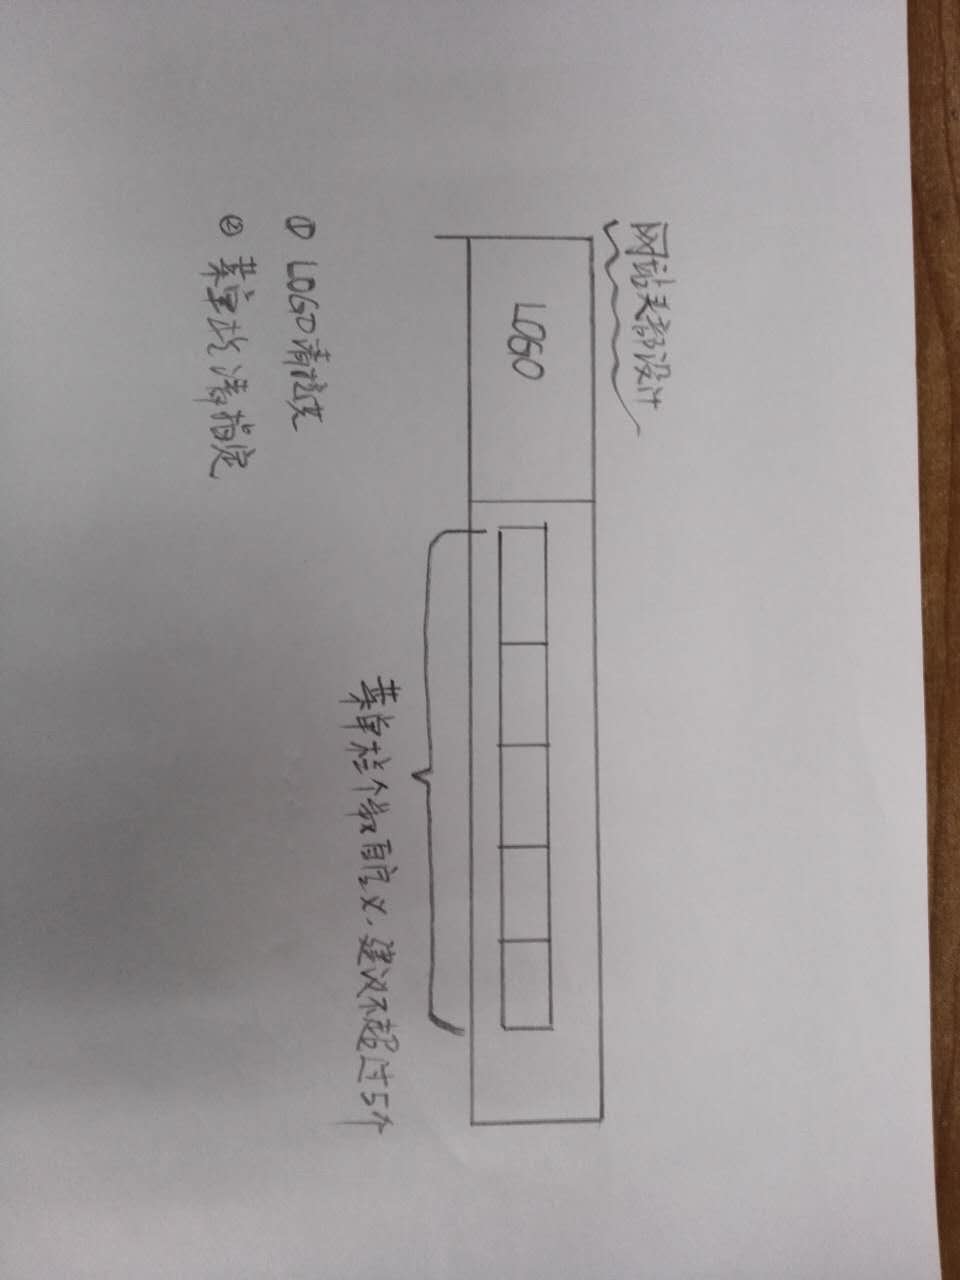 网站头部设计
LOGO
菜单栏个数自定义,建议不超过5个
① LOGO请提供
② 菜单栏请指定